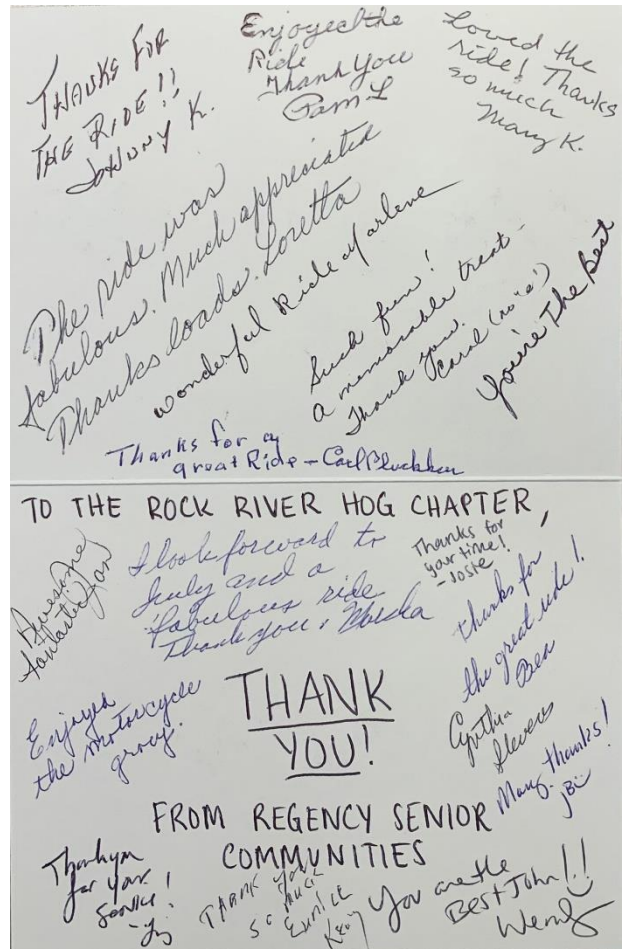 THANKS FOR
THE RIDE!!
JOHNNY K.
Enjoyed the
Ride
Thank You
Pam L
Loved the
ride! Thanks
so much
Mary K.
The ride was
fabulous. Much appreciated
Thanks loads. Loretta
wonderful Ride Marlene
Such fun!
a memorable treat-
Thank you.
Carol
You're The Best
Thanks for a
great Ride - Carl
TO THE ROCK RIVER HOG CHAPTER,
Awesome
fantastic Jan
I look forward to
July and a
fabulous ride
Thank you,
Thanks for
your time!
- Josie
Thanks for
the great ride!
Ben
Enjoyed
the motorcycle
group.
THANK
YOU!
Cynthia
Stevens
Many thanks!
FROM REGENCY SENIOR
COMMUNITIES
Thank you
for your
service!
THANK YOU
SO MUCH
EUNICE
You are the
Best John!!
Wendy